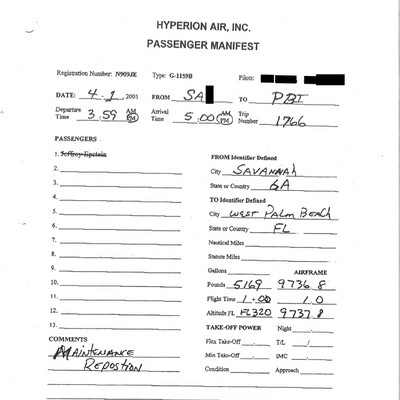 HYPERION AIR, INC.
PASSENGER MANIFEST
Registration Number: N909JE Type: G-1159B Pilots:
DATE: 4-1, 2005 FROM SA TO PBI
Departure Time 3:59 AM PM Arrival Time 5:00 AM PM Trip Number 1766
PASSENGERS
1. Jeffrey Epstein
FROM Identifier Defined
2.
City SAVANNAH
3.
State or Country GA
4.
TO Identifier Defined
5.
City WEST PALM BEACH
6.
State or Country FL
7.
Nautical Miles
8.
Statute Miles
9.
Gallons AIRFRAME
10.
Pounds 5169 9736.8
11.
Flight Time 1+00 1.0
12.
Altitude FL FL320 9737.8
13.
TAKE-OFF POWER Night
COMMENTS
Flex Take-Off T/L /
MAINTENANCE
Min Take-Off IMC
REPOSTION
Condition Approach